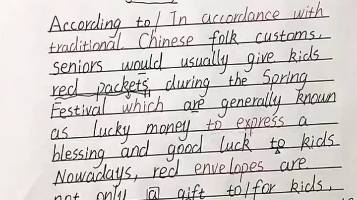 According to/ In accordance with
traditional Chinese folk customs,
seniors would usually give kids
red packets during the Spring
Festival which are generally known
as lucky money to express a
blessing and good luck to kids
Nowadays, red envelopes are
not only a gift to/for kids,